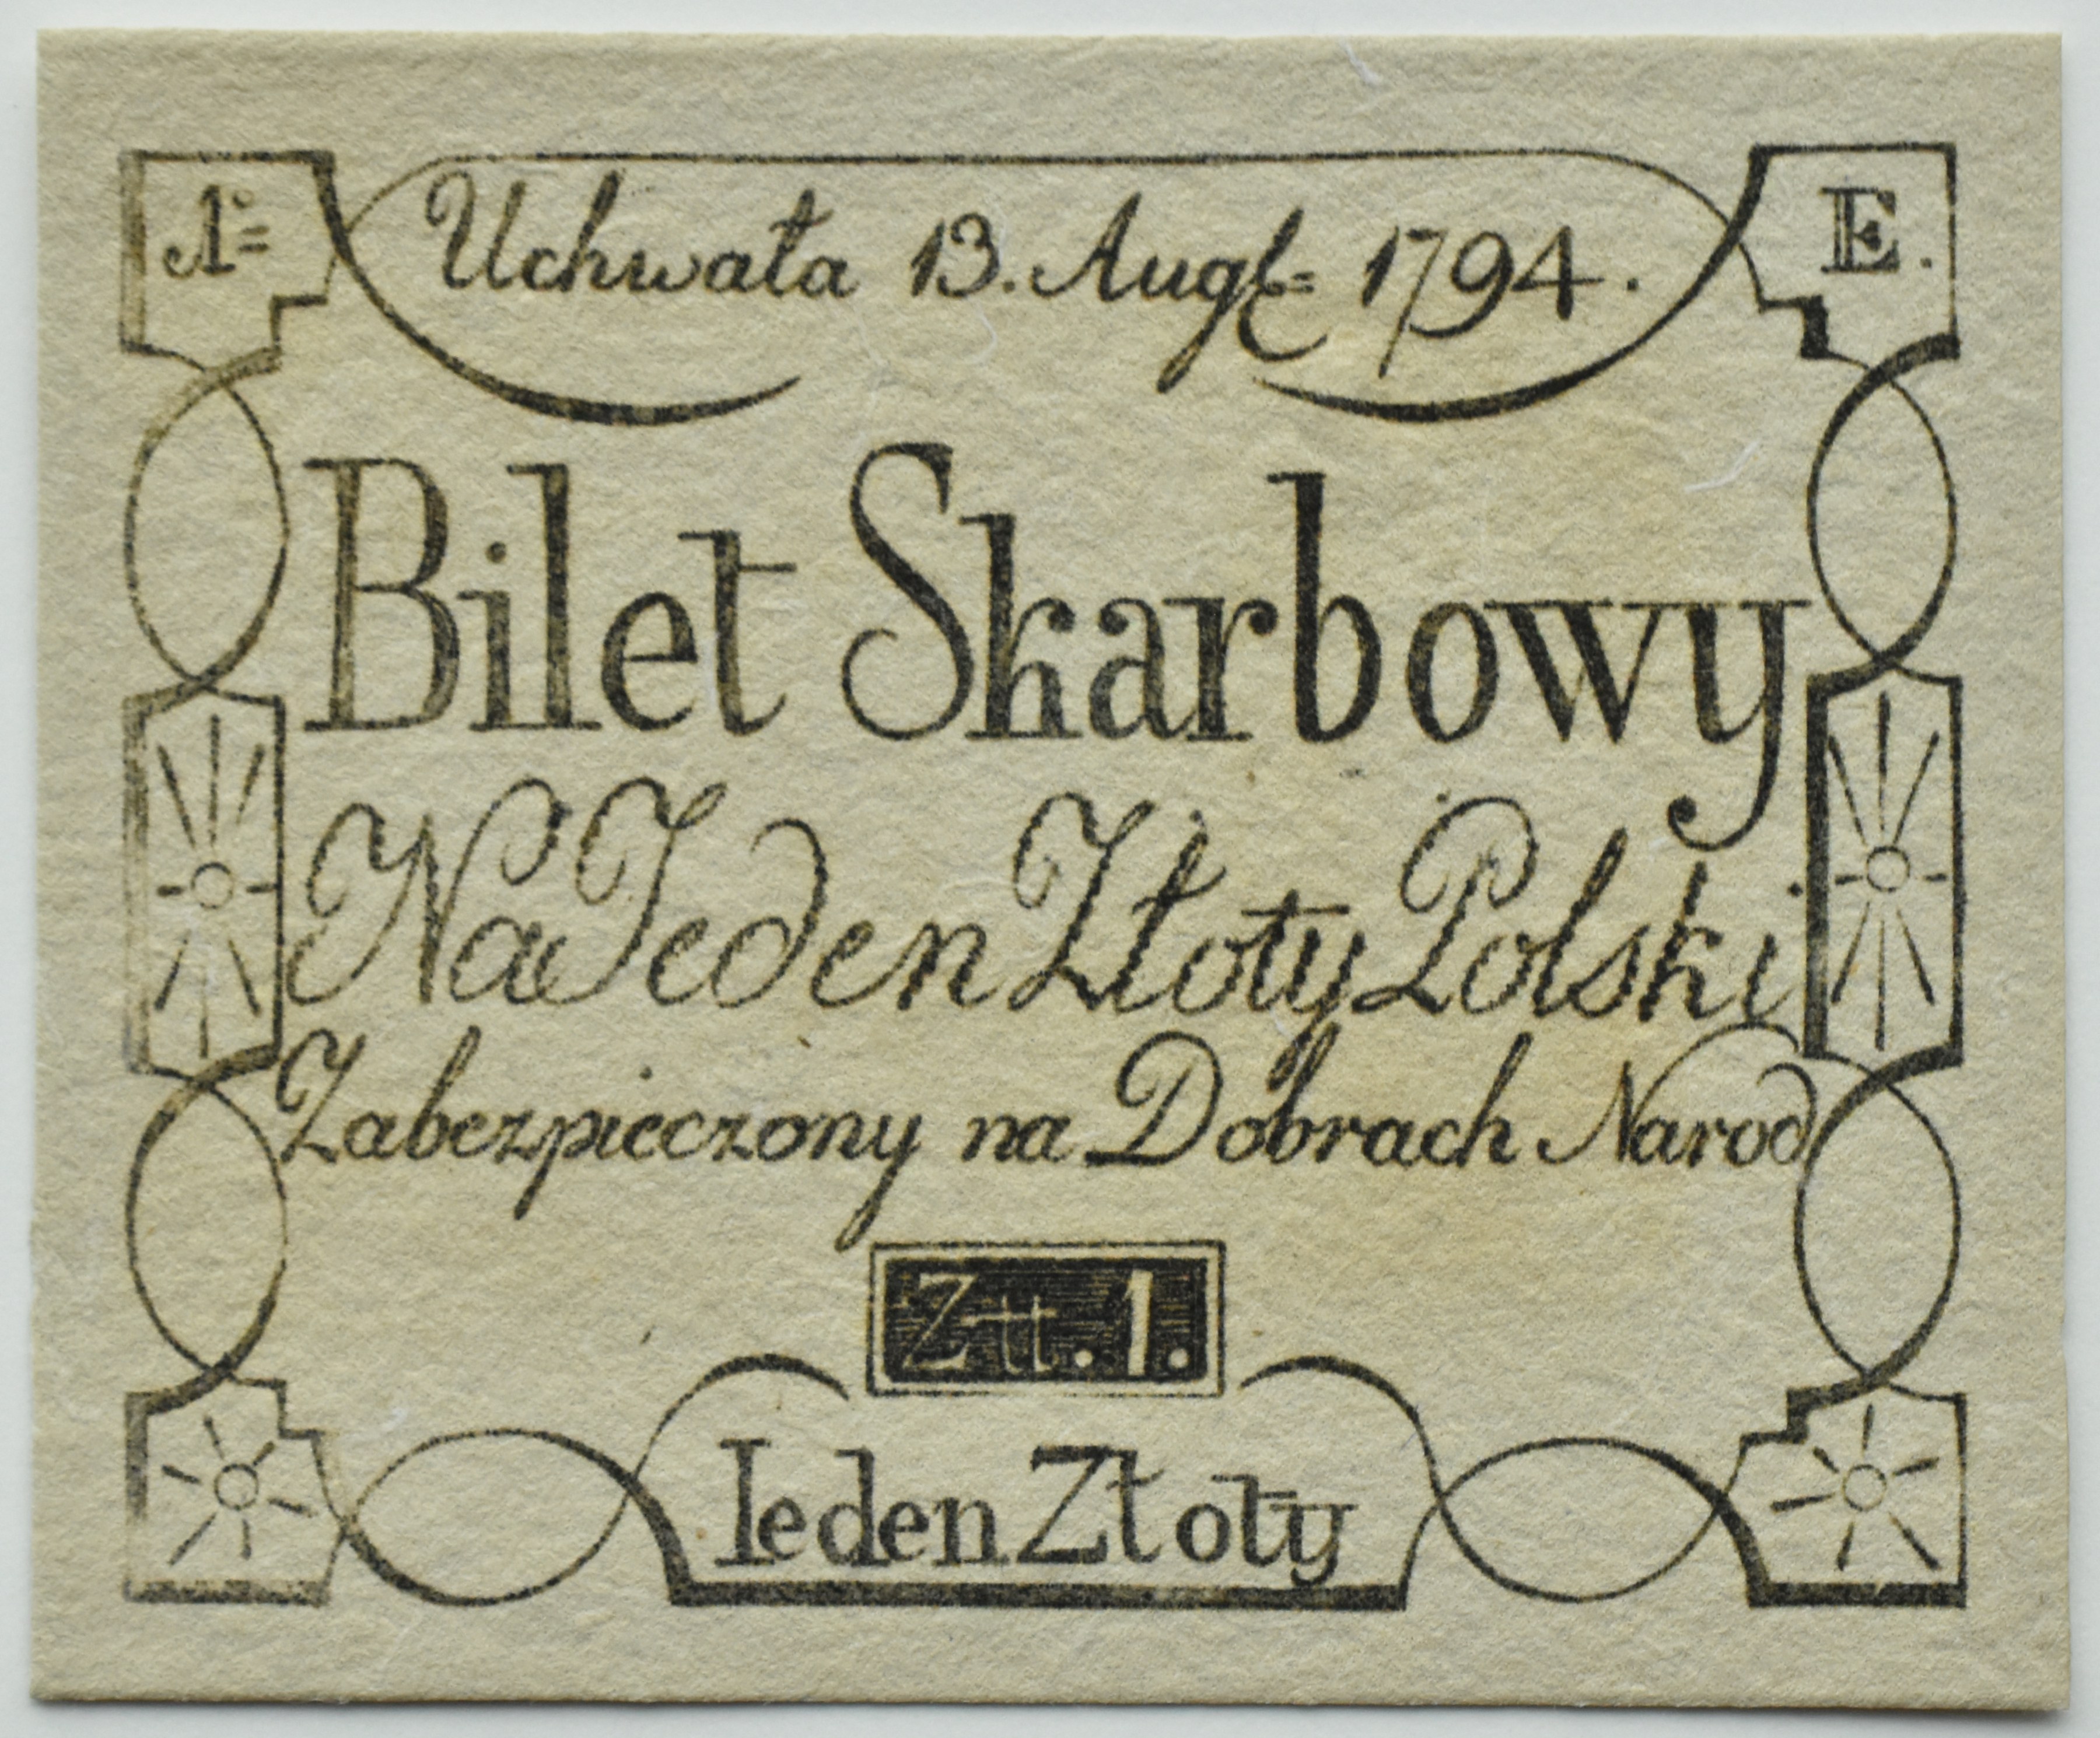 № Uchwała 13. Augt= 1794. E.
Bilet Skarbowy
Na Jeden Złoty Polski
Zabezpieczony na Dobrach Narod
Złł. 1.
Ieden Złoty